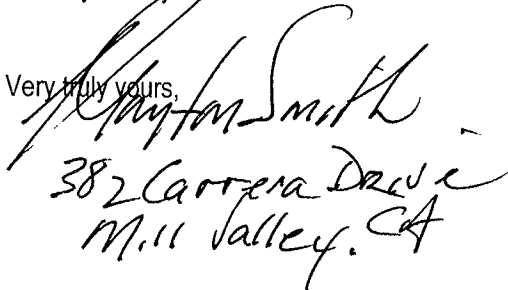 Very truly yours,
Clayton Smith
382 Carrera Drive
Mill Valley. CA